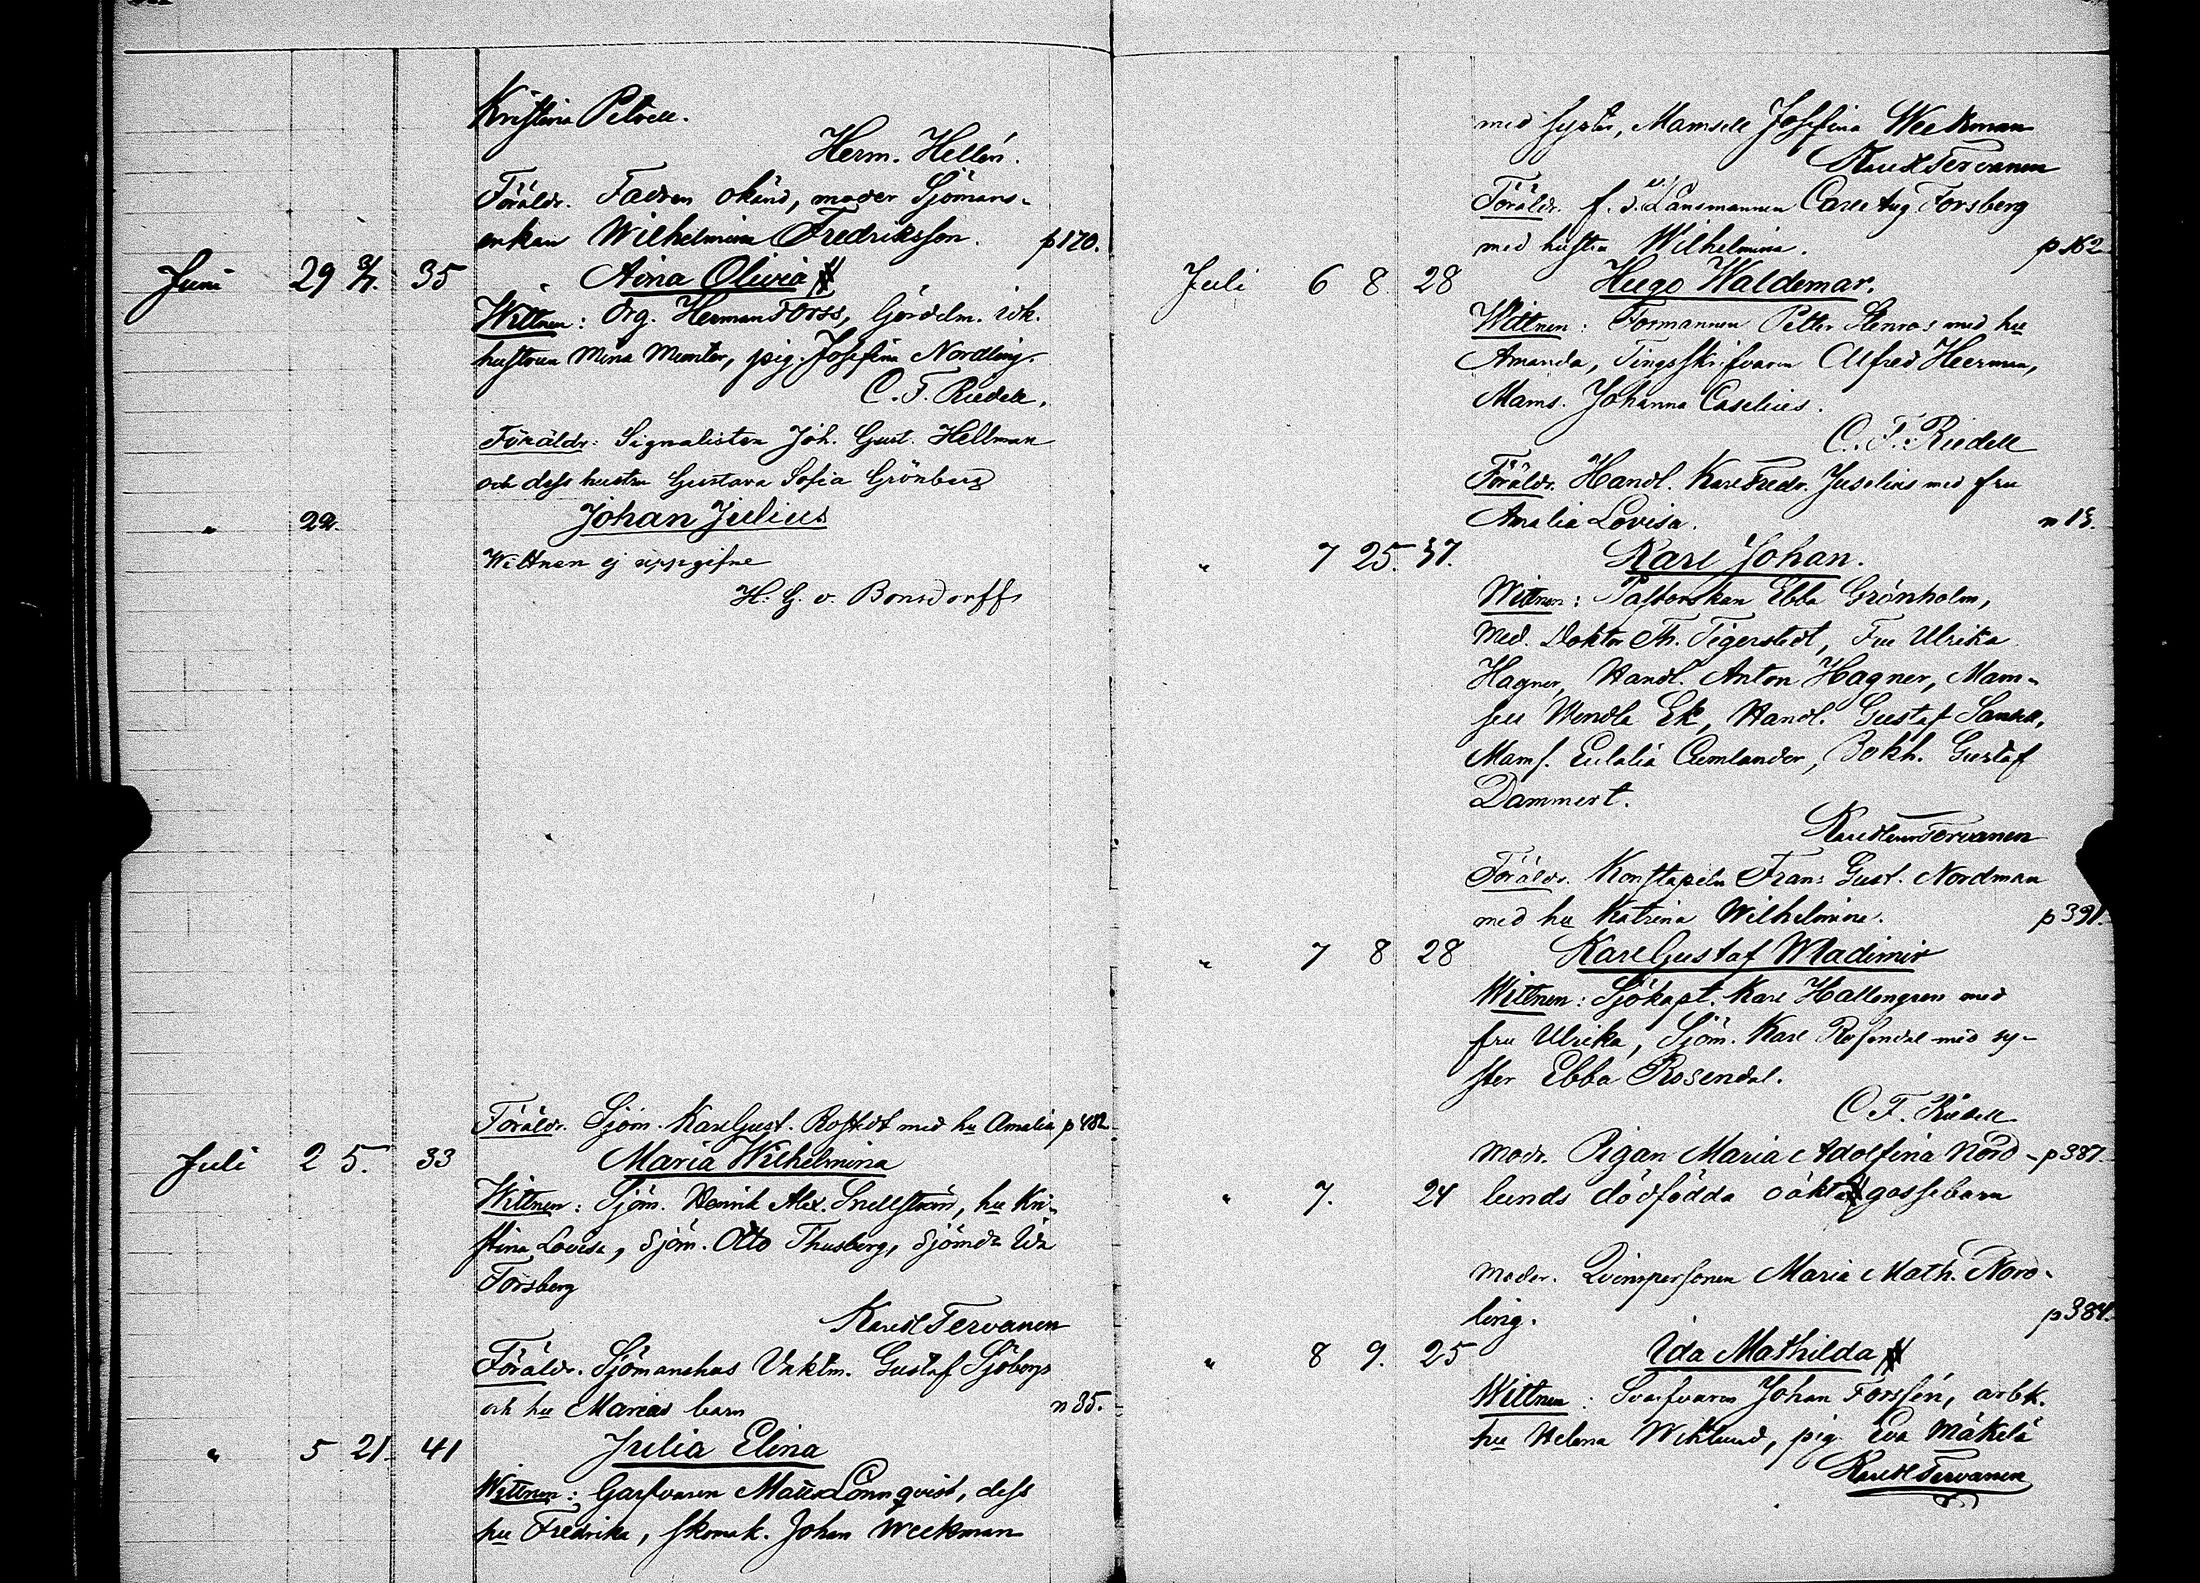 Kristina Petrell.
Herm. Hellén.
Föräldr. Fadren okänd, moder Sjömans-
enkan Wilhelmina Fredriksson. p170.
Juni 29 3/7. 35 Aina Olivia #
Wittnen: Org. Herman Forss, Gördelm. idk.
hustrun Mina Munter, pig. Josefina Nordling.
C. F. Riedell.
Föräldr: Signalisten Joh. Gust. Hellman
och dess hustru Gustava Sofia Grönberg
" 29. Johan Julius
Wittnen ej uppgifne
H. G. v. Bonsdorff
Föräldr. Sjöm. Karl Gust. Rostedt med hu Amalia p482
Juli 2 5. 33 Maria Wilhelmina
Wittnen: Sjöm. Henrik Alex. Snellström, hu Kri-
stina Lovisa, Sjöm. Otto Thusberg, Sjömdr Ida
Forsberg
Karl Tervanen
Föräldr. Sjömanshus Vaktm. Gustaf Sjöbergs
och hu Marias barn n35.
" 5 21. 41 Julia Elina
Wittnen: Garfvaren Lönnqvist, dess
hu Fredrika, skomak. Johan Weekman
med syster, Mamsell Josefina Weekman
Karl Tervanen
Föräldr. f. d. Länsmannen Carl Aug. Forsberg
med hustru Wilhelmina. p162
Juli 6 8. 28 Hugo Waldemar.
Wittnen: Formannen Petter Stenros med hu
Amanda, Tingsskrifvaren Alfred Heerman,
Mams. Johanna Caselius.
C. F. Riedell
Föräldr. Handl. Karl Fredr. Juselius med fru
Amalia Lovisa. n13.
" 7 25. 37. Karl Johan.
Wittnen: Pastorskan Ebba Grönholm,
Med. Doktor Th. Tigerstedt, Fru Ulrika
Hagner, Handl. Anton Hagner, Mam-
sell Wendla Ek, Handl. Gustaf
Mams. Eulalia Cumlander, Bokh. Gustaf
Dammert.
Karl Tervanen
Föräldr. Konstapeln Frans Gust. Nordman
med hu Katrina Wilhelmina. p391.
" 7 8 28 Karl Gustaf Wladimir
Wittnen: Sjökapt. Karl Hallengren med
fru Ulrika, Sjöm. Karl Rosendal med sy-
ster Ebba Rosendal.
C. F. Riedell
Modr. Pigan Maria Adolfina Nord- p387.
" 7. 24 lunds dödfödda oäkta # gossebarn
Moder. Qvinspersonen Maria Math. Nord-
ling. p384.
" 8 9. 25 Ida Mathilda #
Wittnen: Svarfvaren Johan Forssén, arbk.
hu Helena Wiklund, pig. Eva Mäkelä
Karl Tervanen